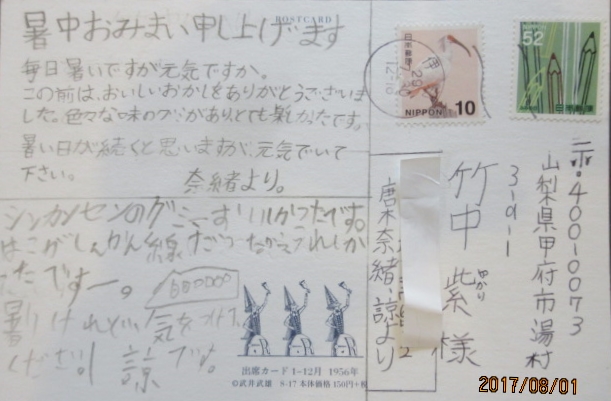 POSTCARD
暑中おみまい申し上げます
毎日暑いですが元気ですか。
この前は、おいしいおかしをありがとうございま
した。色々な味の
がありとても
かったです。
暑い日が続くと思いますが、元気でいて
下さい。
奈緒より。
シンカンセンのグミ
です。
はこがしんかん線だっ
うれしか
ったですー。
暑いけれど、気をつけて
ください 諒
出席カード 1-12月 1956年
©武井武雄 S-17 本体価格150円+税
日本郵便
NIPPON 10
52
日本郵便
29
12-18
〒400-0073
山梨県甲府市湯村
3-9-1
竹中紫様
ゆかり
唐木奈緒、諒より
2
2017/08/01